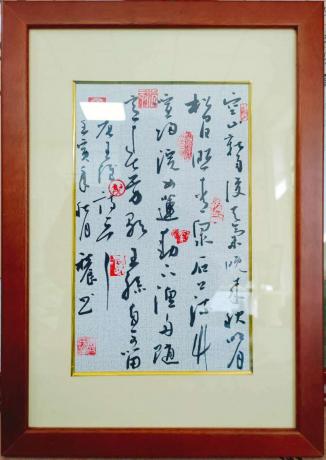 空山新雨後天氣晚來秋明月
松間照清泉石上流竹
喧歸浣女蓮動下漁舟隨
意春芳歇王孫自可留
唐王維詩
壬寅年秋月 書